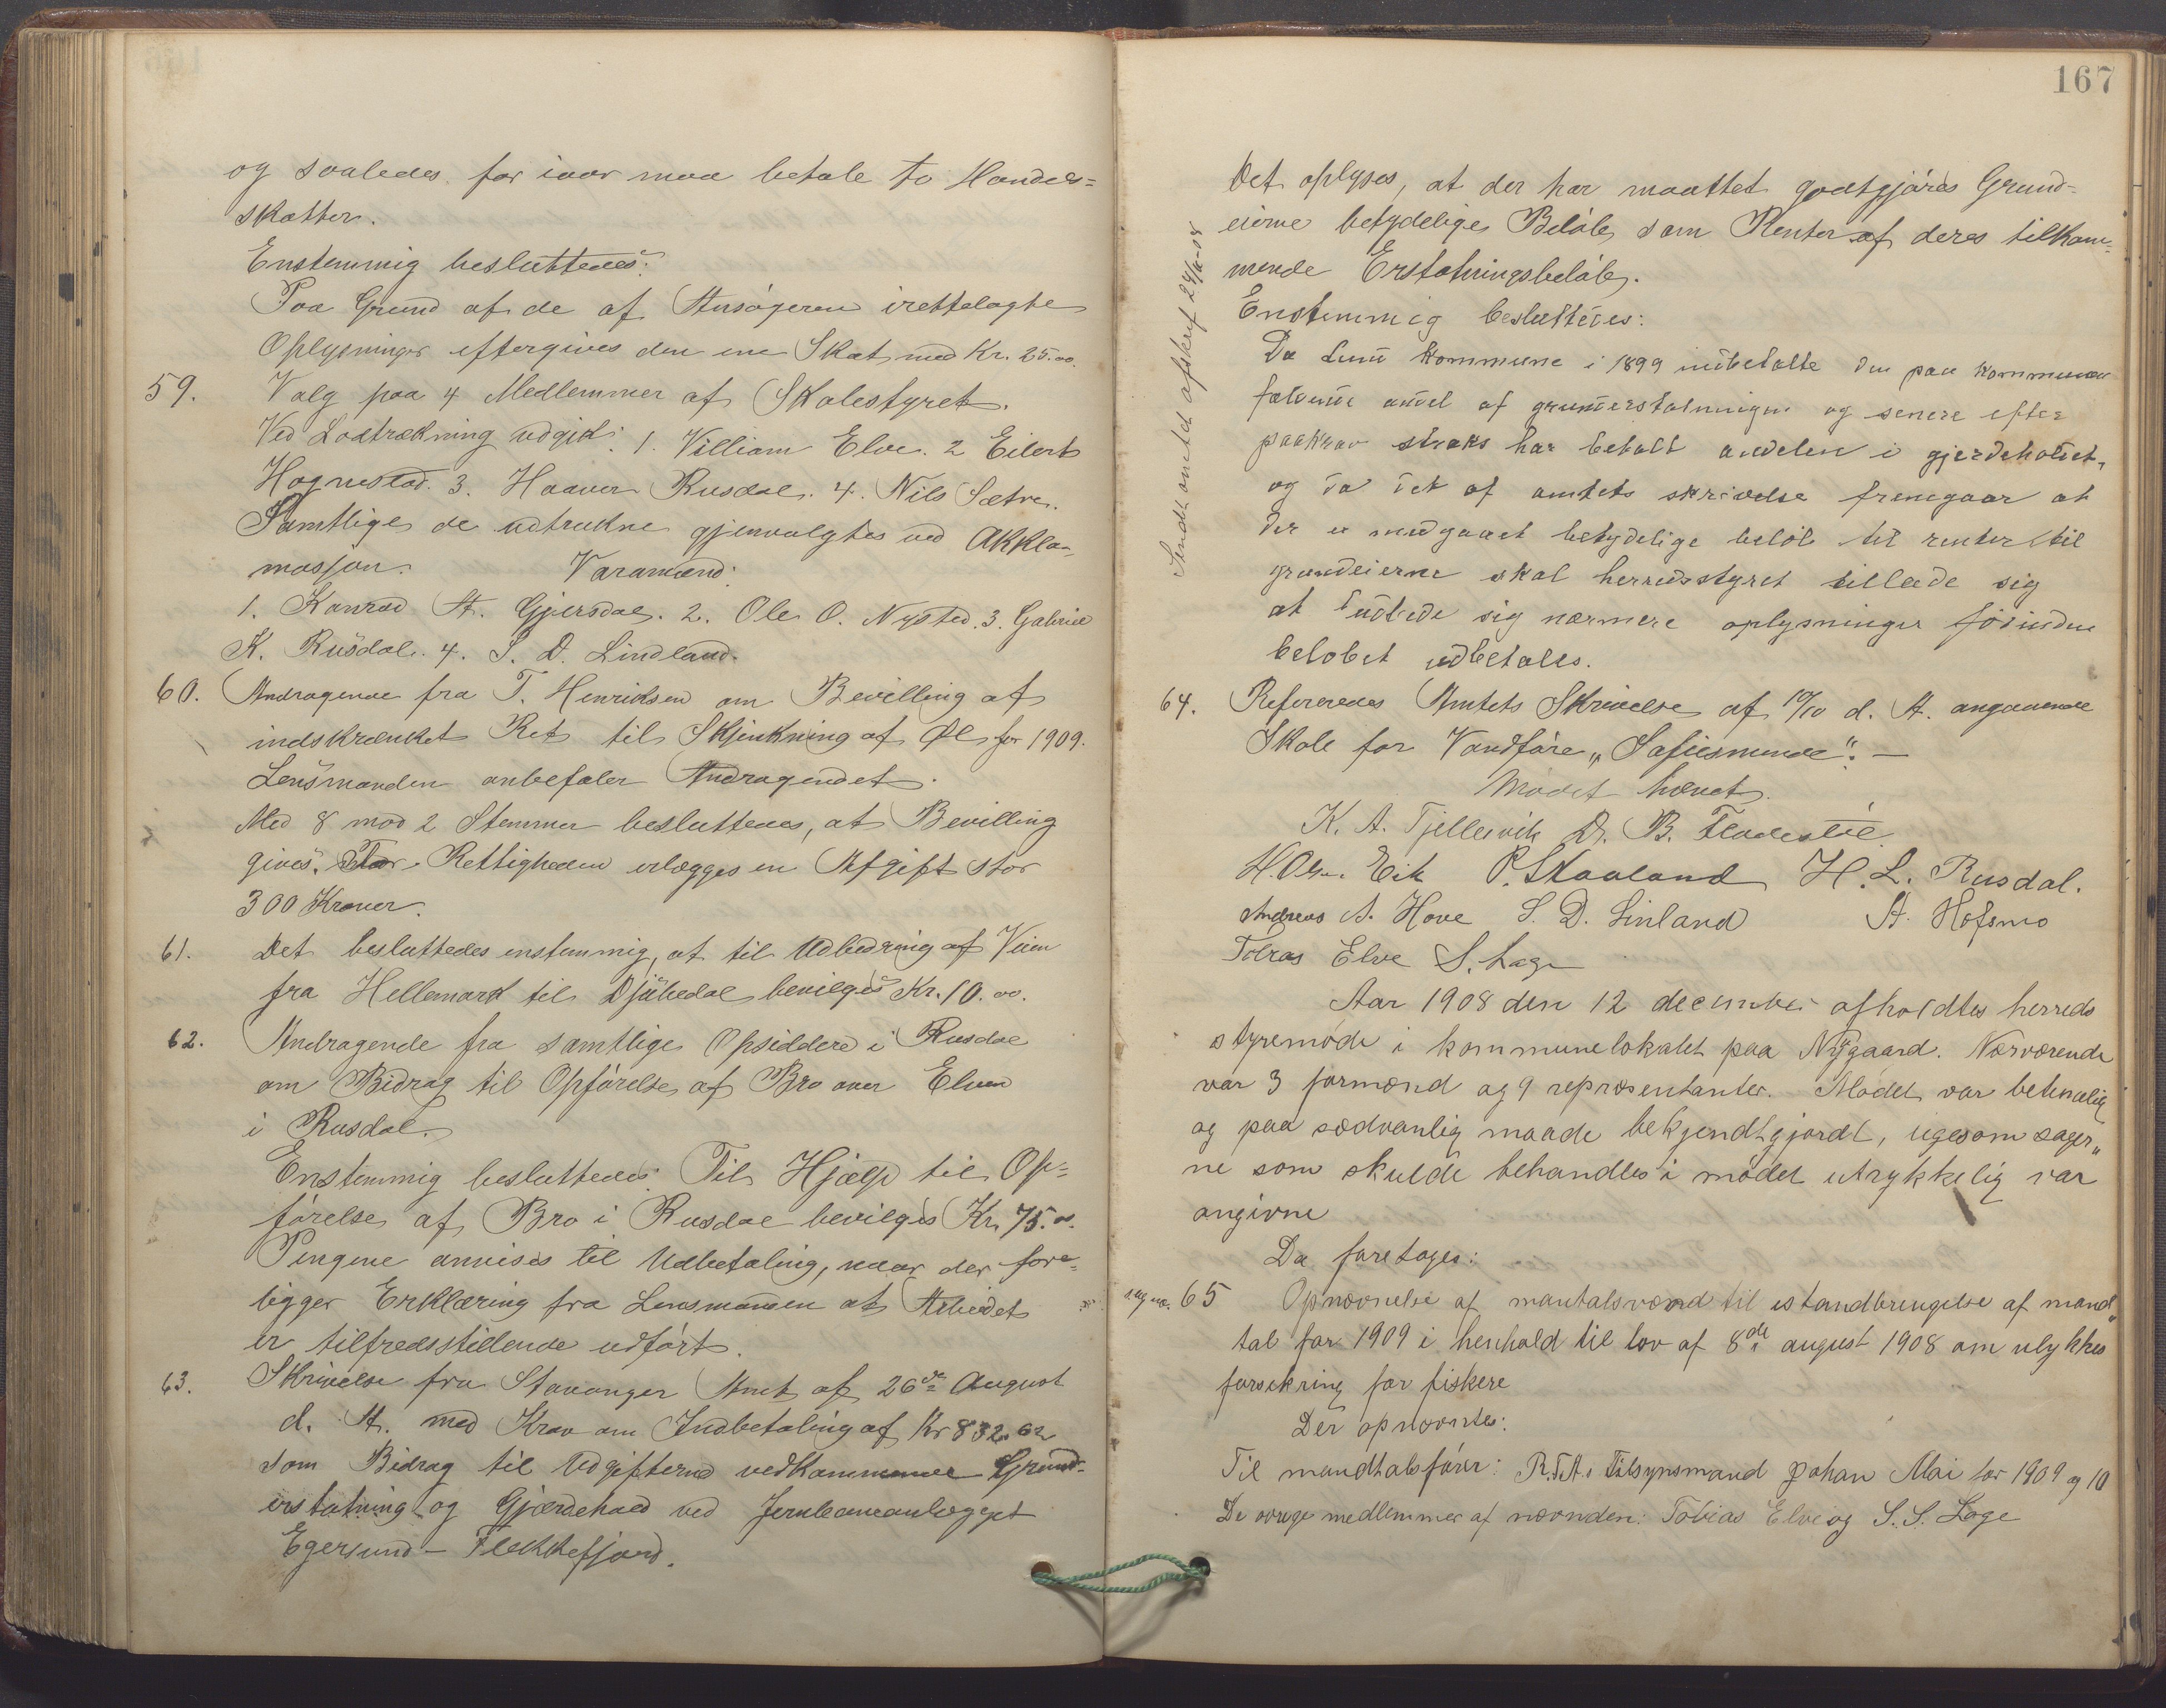 og saaledes for iaar maa betale to Handels=
skatter.
Enstemmig besluttedes:
Paa Grund af de af Ansøgeren irettelagte
Oplysninger eftergives den ene Skat med Kr. 25.00.
59. Valg paa 4 Medlemmer af Skolestyret.
Ved Lodtrækning udgik: 1. Villiam Elve. 2 Eilert
Hognestad. 3. Haaver Rusdal. 4. Nils Sætre.
Samtlige de udtrukne gjenvalgtes ved Akkla-
masjon. Varamænd:
1. Konrad A. Gjersdal. 2. Ole O. Nysted. 3. Gabriel
K. Rusdal. 4. S. D. Lindland.
60. Andragende fra T. Henriksen om Bevilling af
indskrænket Ret til Skjænkning af Øl for 1909.
Lensmanden anbefaler Andragendet.
Med 8 mod 2 Stemmer besluttedes, at Bevilling
gives. For Rettigheden erlægges en Afgift stor
300 Kroner.
61. Det besluttedes enstemmig, at til Udbedring af Veien
fra Hellemark til Djubedal bevilges Kr. 10.00.
62. Andragende fra samtlige Opsiddere i Rusdal
om Bidrag til Opførelse af Bro over Elven
i Rusdal.
Enstemmig besluttedes: Til Hjælp til Op=
førelse af Bro i Rusdal bevilges Kr. 75.00.
Pengene anvises til Udbetaling, naar der fore=
ligger Erklæring fra Lensmanden at Arbeidet
er tilfredsstillende udført.
63. Skrivelse fra Stavanger Amt af 26de August
d. A. med Krav om Indbetaling af Kr 832.62
som Bidrag til Udgifterne vedkommende Grund-
erstatning og Gjærdehold ved Jernbaneanlægget
Egersund - Flekkefjord.
167
Det oplyses, at der har maattet godtgjøres Grund=
eierne betydelige Beløb som Renter af deres tilkom=
mende Erstatningsbeløb.
Enstemmig besluttedes:
Da Lund kommune i 1899 indbetalte den paa kommunen
faldende andel af grunderstatningen og senere efter
paakrav straks har betalt andelen i gjerdeholdet,
og da det af amtets skrivelse fremgaar at
der er medgaaet betydelige beløb til renter til
grundeierne skal herredsstyret tillade sig
at udbede sig nærmere oplysninger førinden
beløbet udbetales.
Sendt amtet afskrift 24/11-08
64. Refereredes Amtets Skrivelse af 10/10 d. A. angaaende
Skole for Vandføre "Sofiesminde". —
Mødet hævet.
K. A. Tjellesvik D. B. Fladestøl
H. Olsen Eik P. Skaaland H. L. Rusdal.
Andreas A. Hove S. D. Linland A. Hofsmo
Tobias Elve S. Lage
Aar 1908 den 12 december afholdtes herreds
styremøde i kommunelokalet paa Nygaard. Nærværende
var 3 formænd og 9 repræsentanter. Mødet var betimelig
og paa sædvanlig maade bekjendtgjordt, ligesom sager„
ne som skulde behandles i mødet utrykkelig var
angivne
Da foretages:
sag no. 65 Opnævnelse af mantalsværd til istandbringelse af mand„
tal for 1909 i henhold til lov af 8de august 1908 om ulykkes
forsikring for fiskere
Der opnævntes:
Til mandtalsfører: R.F.A.s Tilsynsmand Johan Mai for 1909 og 10
De øvrige medlemmer af nævnden: Tobias Elve og S. S. Lage